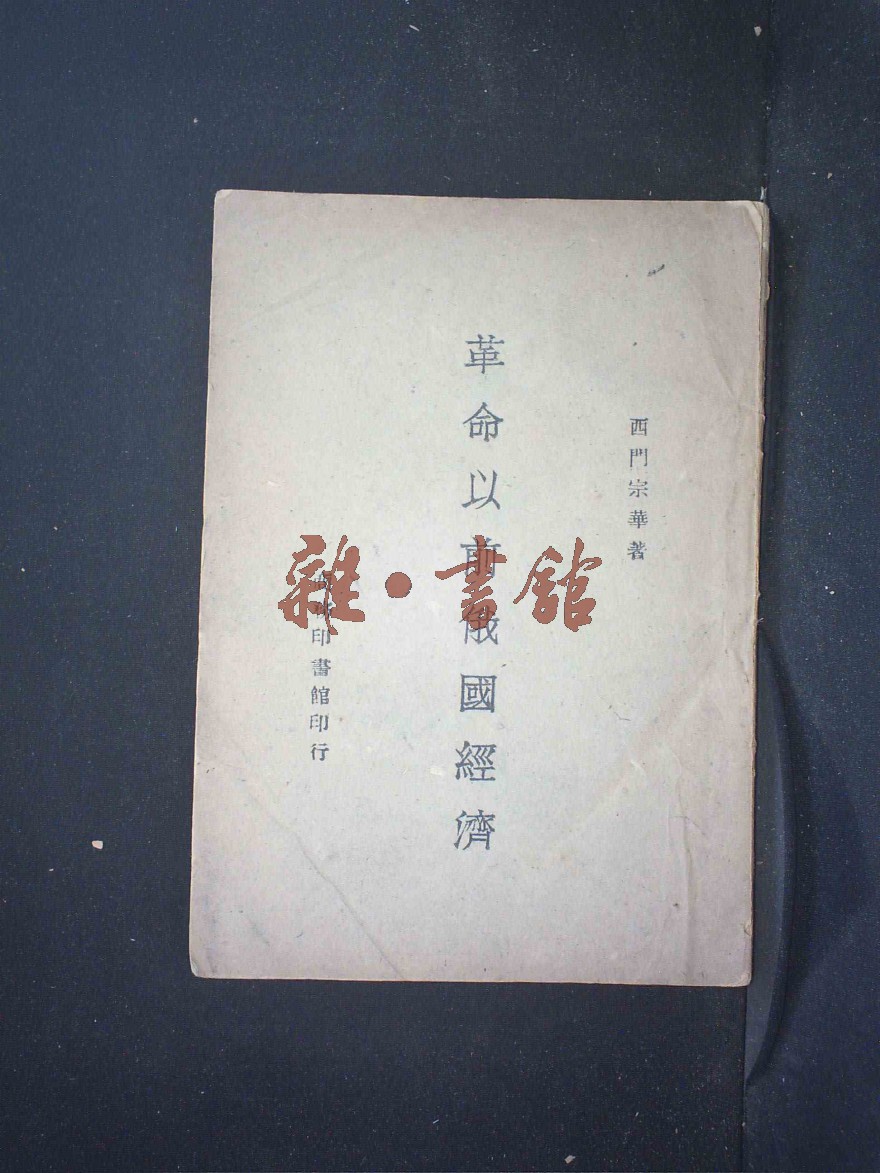 西門宗華著
革命以前俄國經濟
商務印書館印行
雜·書館